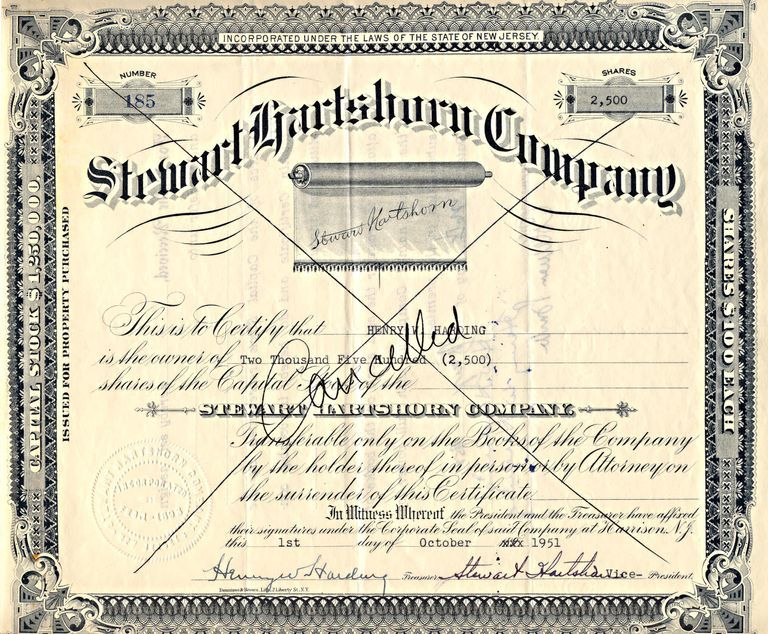 INCORPORATED UNDER THE LAWS OF THE STATE OF NEW JERSEY.
NUMBER
185
SHARES
2,500
Stewart Hartshorn Company
Stewart Hartshorn
CAPITAL STOCK $1,250,000.
ISSUED FOR PROPERTY PURCHASED
SHARES $100 EACH
This is to Certify that HENRY W. HARDING
is the owner of Two Thousand Five Hundred (2,500)
shares of the Capital Stock of the
STEWART HARTSHORN COMPANY.
Cancelled
Transferable only on the Books of the Company
by the holder thereof in person or by Attorney on
the surrender of this Certificate.
In Witness Whereof the President and the Treasurer have affixed
their signatures under the Corporate Seal of said Company at Harrison, N.J.
this 1st day of October 1951
Henry W Harding Treasurer Stewart Hartshorn Vice- President.